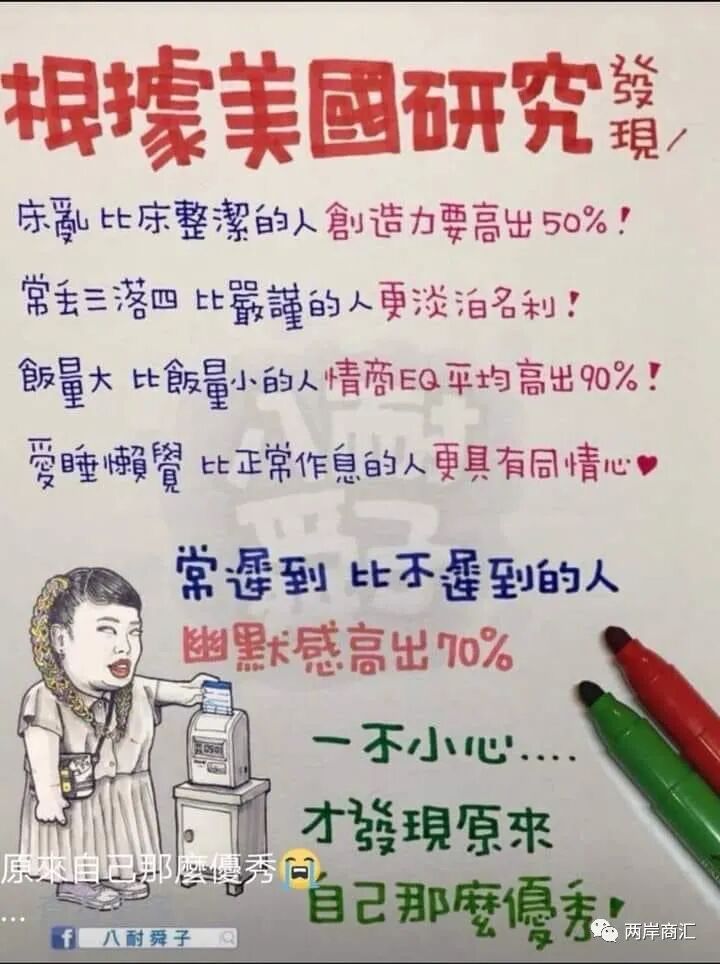 根據美國研究發現！
床亂比床整潔的人創造力要高出50%！
常丟三落四 比嚴謹的人更淡泊名利！
飯量大 比飯量小的人情商EQ平均高出90%！
愛睡懶覺 比正常作息的人更具有同情心♥
常遲到 比不遲到的人
幽默感高出70%
一不小心....
才發現原來
自己那麼優秀！
原來自己那麼優秀😭
...
八耐舜子
f 八耐舜子
两岸商汇